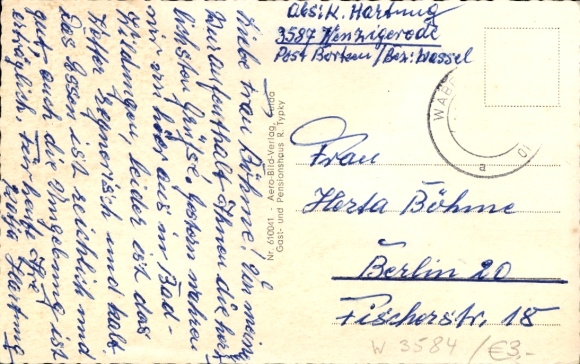 Abs: K. Hartung
3587 Nenzigerode
Post Borken / Bez. Kassel
Liebe Frau Böhme! Von meinem
Kuraufenthalt Ihnen die herz-
lichsten Grüße. Gestern
wir von hier aus in Bad-
Wildungen, leider ist das
Wetter regnerisch und kalt.
Das Essen ist reichlich und
gut auch die Umgebung ist
erträglich. Für heute Ihre
Hartung
Nr. 610041 · Aero-Bild-Verlag, Fulda
Gast- und Pensionshaus R. Typky
WAB
a
Frau
Herta Böhme
Berlin 20
Fischerstr. 18
W 3584 / €3,-